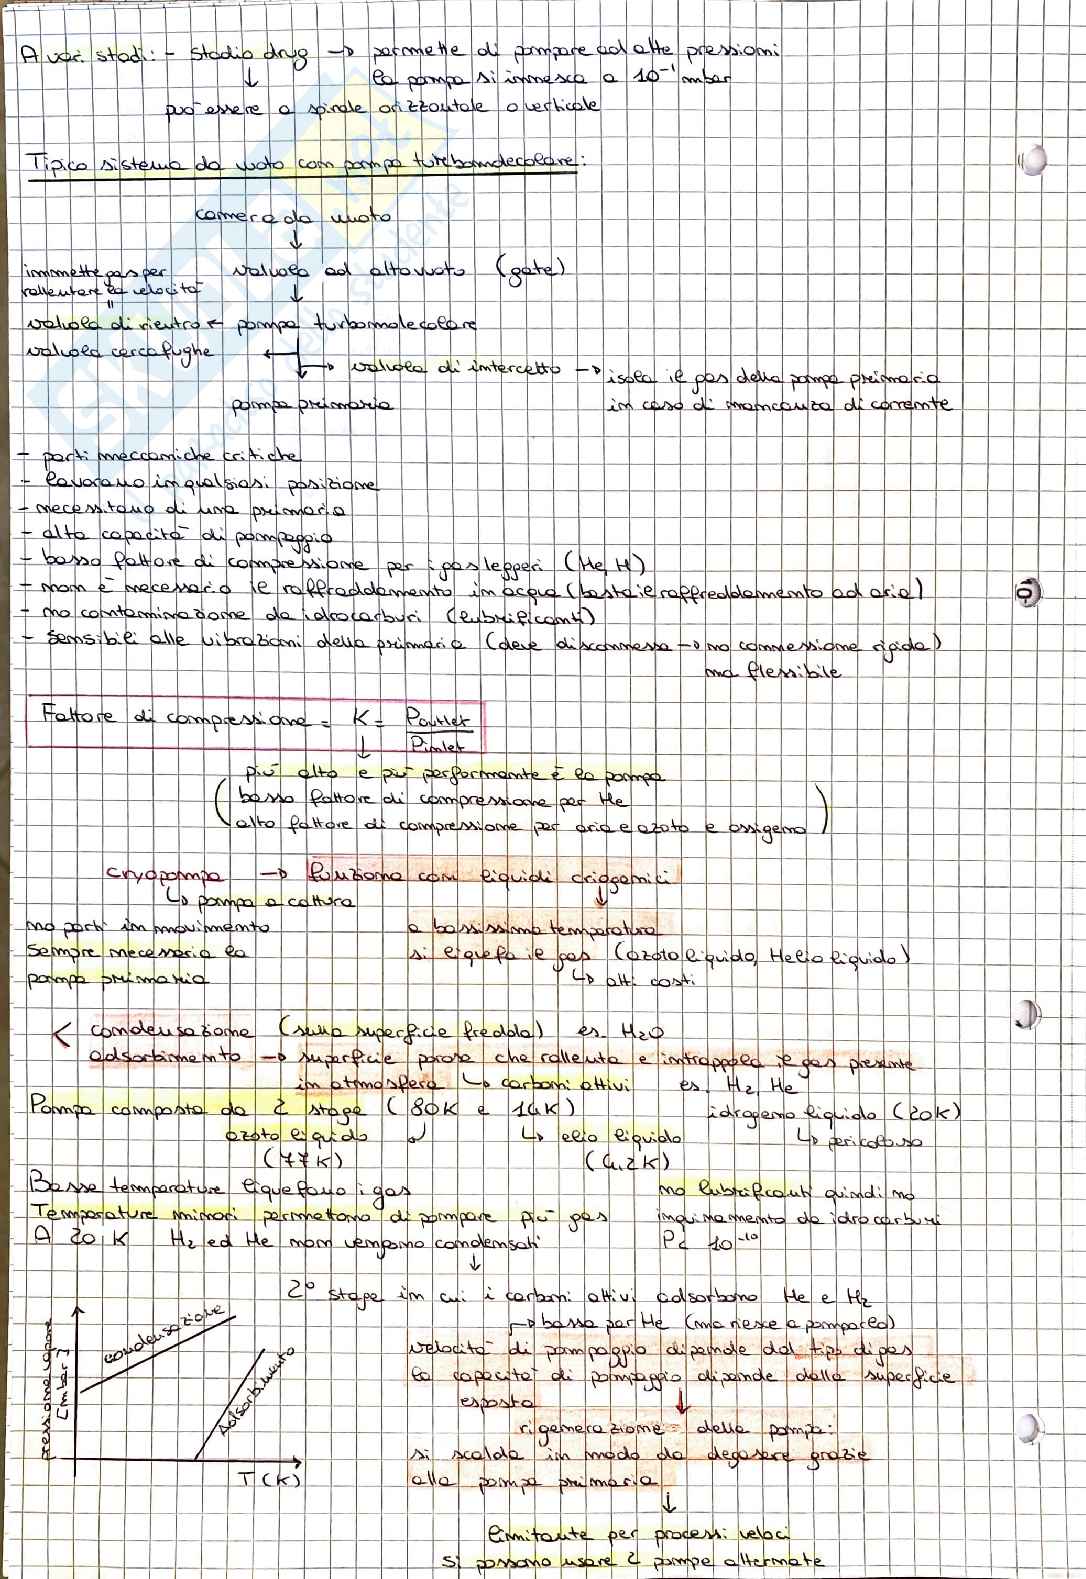 A vari stadi: - Stadio drag → permette di pompare ad alte pressioni
la pompa si innesca a 10⁻¹ mbar
↓
può essere a spirale orizzontale o verticale
Tipico sistema da vuoto con pompa turbomolecolare:
camera da vuoto
↓
immette gas per valvola ad alto vuoto (gate)
rallentare la velocità ↓
"
valvola di rientro ← pompa turbomolecolare
valvola cercafughe ←
→ valvola di intercetto → isola il gas della pompa primaria
pompa primaria in caso di mancanza di corrente
- parti meccaniche critiche
- lavorano in qualsiasi posizione
- necessitano di una primaria
- alta capacità di pompaggio
- basso fattore di compressione per i gas leggeri (He, H)
- non è necessario il raffreddamento in acqua (basta il raffreddamento ad aria)
- no contaminazione da idrocarburi (lubrificanti)
- sensibili alle vibrazioni della primaria (deve disconnessa → no connessione rigida)
ma flessibile
Fattore di compressione = K = Poutlet
Pinlet
↓
più alto e più performante è la pompa
(basso fattore di compressione per He
alto fattore di compressione per aria e azoto e ossigeno)
cryopompa → funziona con liquidi criogenici
↳ pompa a cattura ↓
no parti in movimento a bassissima temperatura
sempre necessaria la si liquefa il gas (azoto liquido, Helio liquido)
pompa primaria ↳ alti costi
< condensazione (sulla superficie fredda) es. H₂O
adsorbimento → superficie porosa che rallenta e intrappola il gas presente
in atmosfera ↳ carboni attivi es. H₂, He
Pompa composta da 2 stage (80K e 14K) idrogeno liquido (20K)
azoto liquido ↲ ↳ elio liquido ↳ pericoloso
(77K) (4,2K)
Basse temperature liquefano i gas no lubrificanti quindi no
Temperature minori permettono di pompare più gas inquinamento da idrocarburi
A 20 K H₂ ed He non vengono condensati P< 10⁻¹⁰
↓
2° stage in cui i carboni attivi adsorbono He e H₂
→ bassa per He (ma riesce a pomparlo)
velocità di pompaggio dipende dal tipo di gas
la capacità di pompaggio dipende dalla superficie
esposta ↓
rigenerazione = della pompa:
si scalda in modo da degasare grazie
alla pompa primaria
↓
limitante per processi veloci
si possono usare 2 pompe alternate
pressione vapore
[mbar]
condensazione
adsorbimento
T(K)